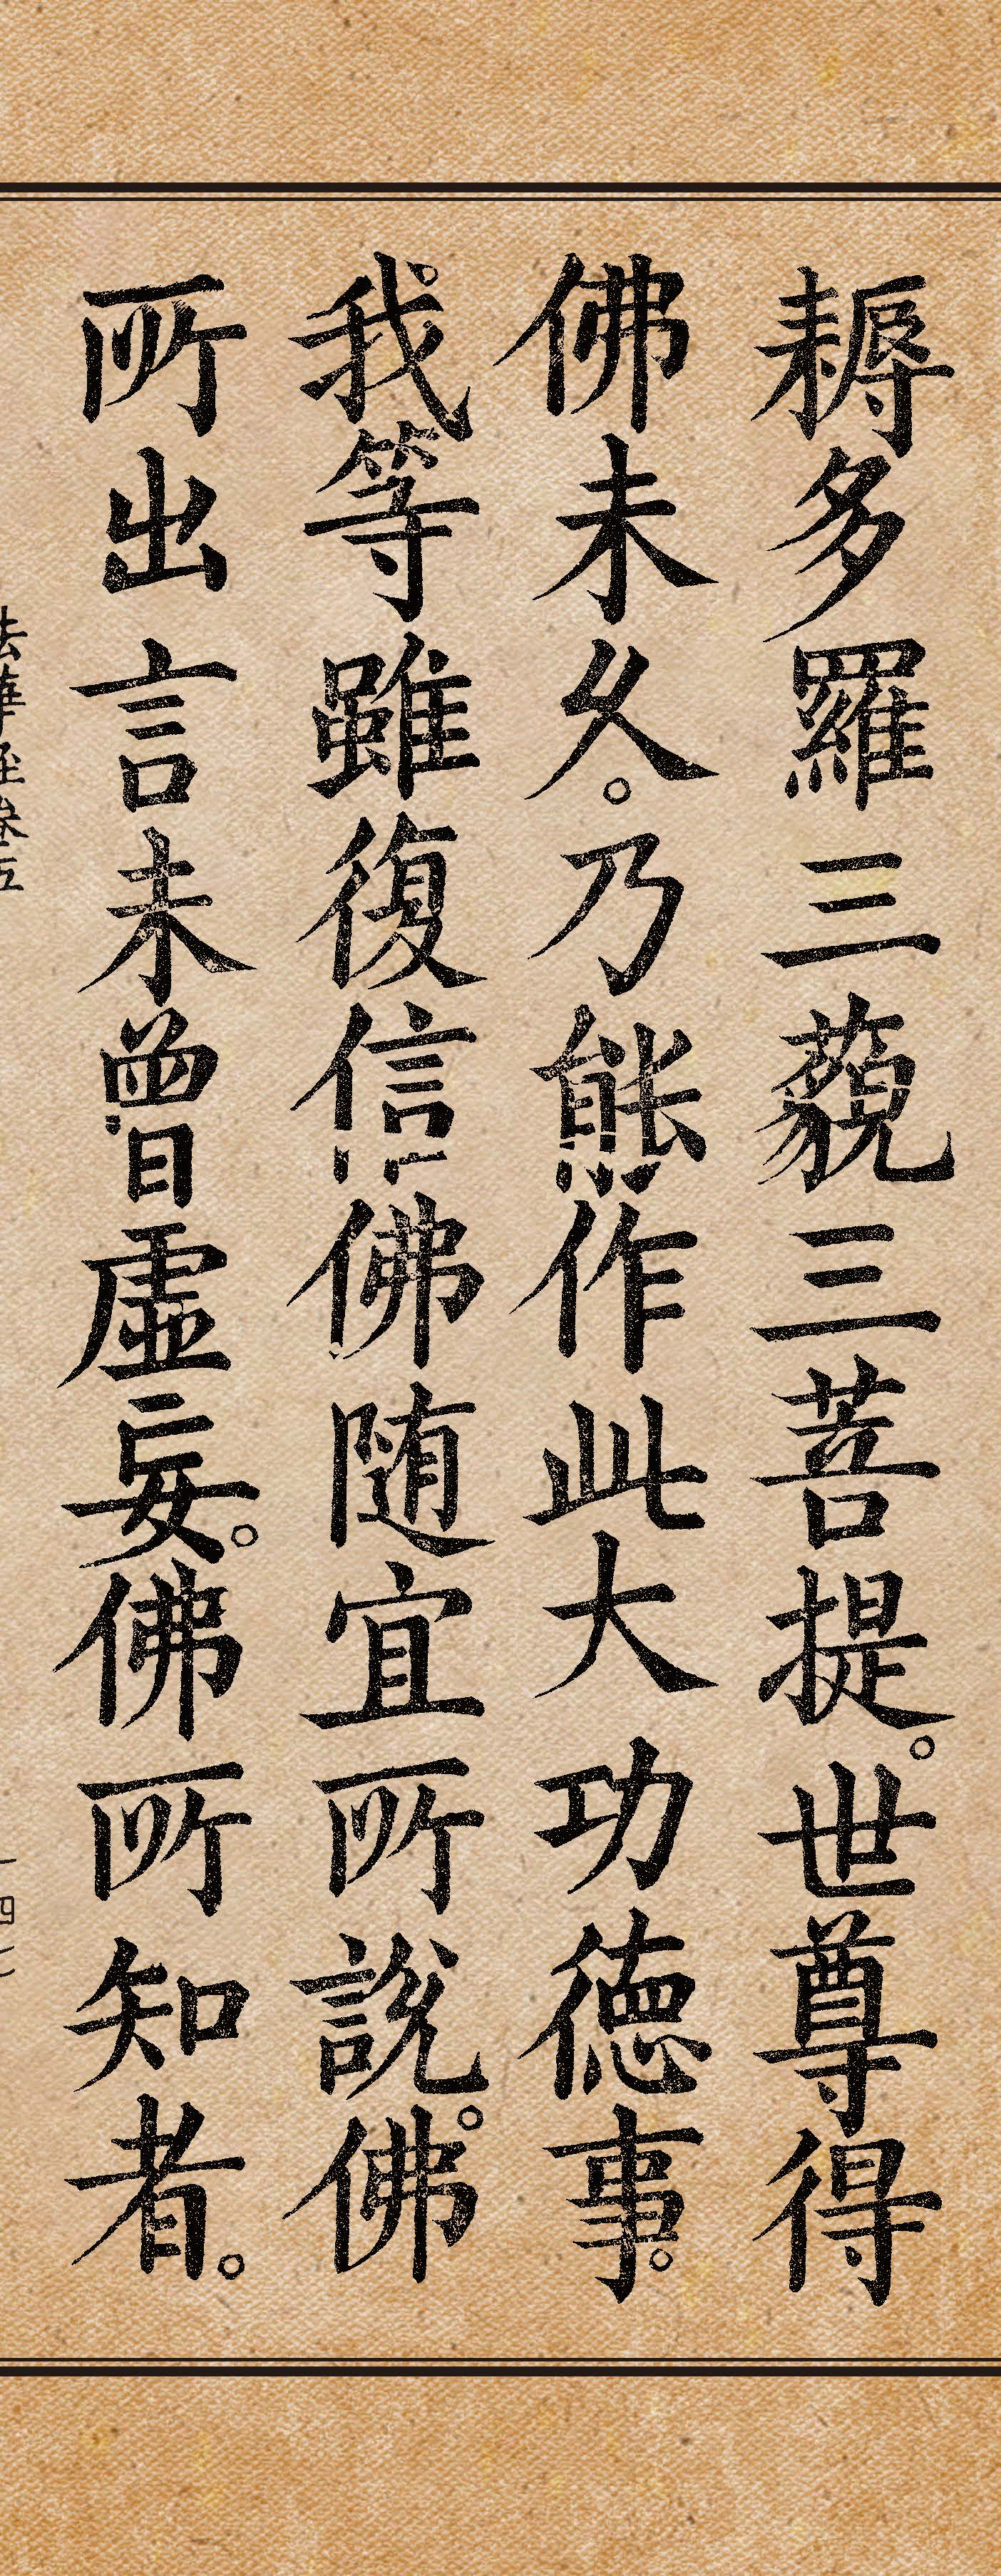 耨多羅三藐三菩提。世尊得
佛未久。乃能作此大功德事。
我等雖復信佛隨宜所說。佛
所出言未曾虛妄。佛所知者。
法華經卷五